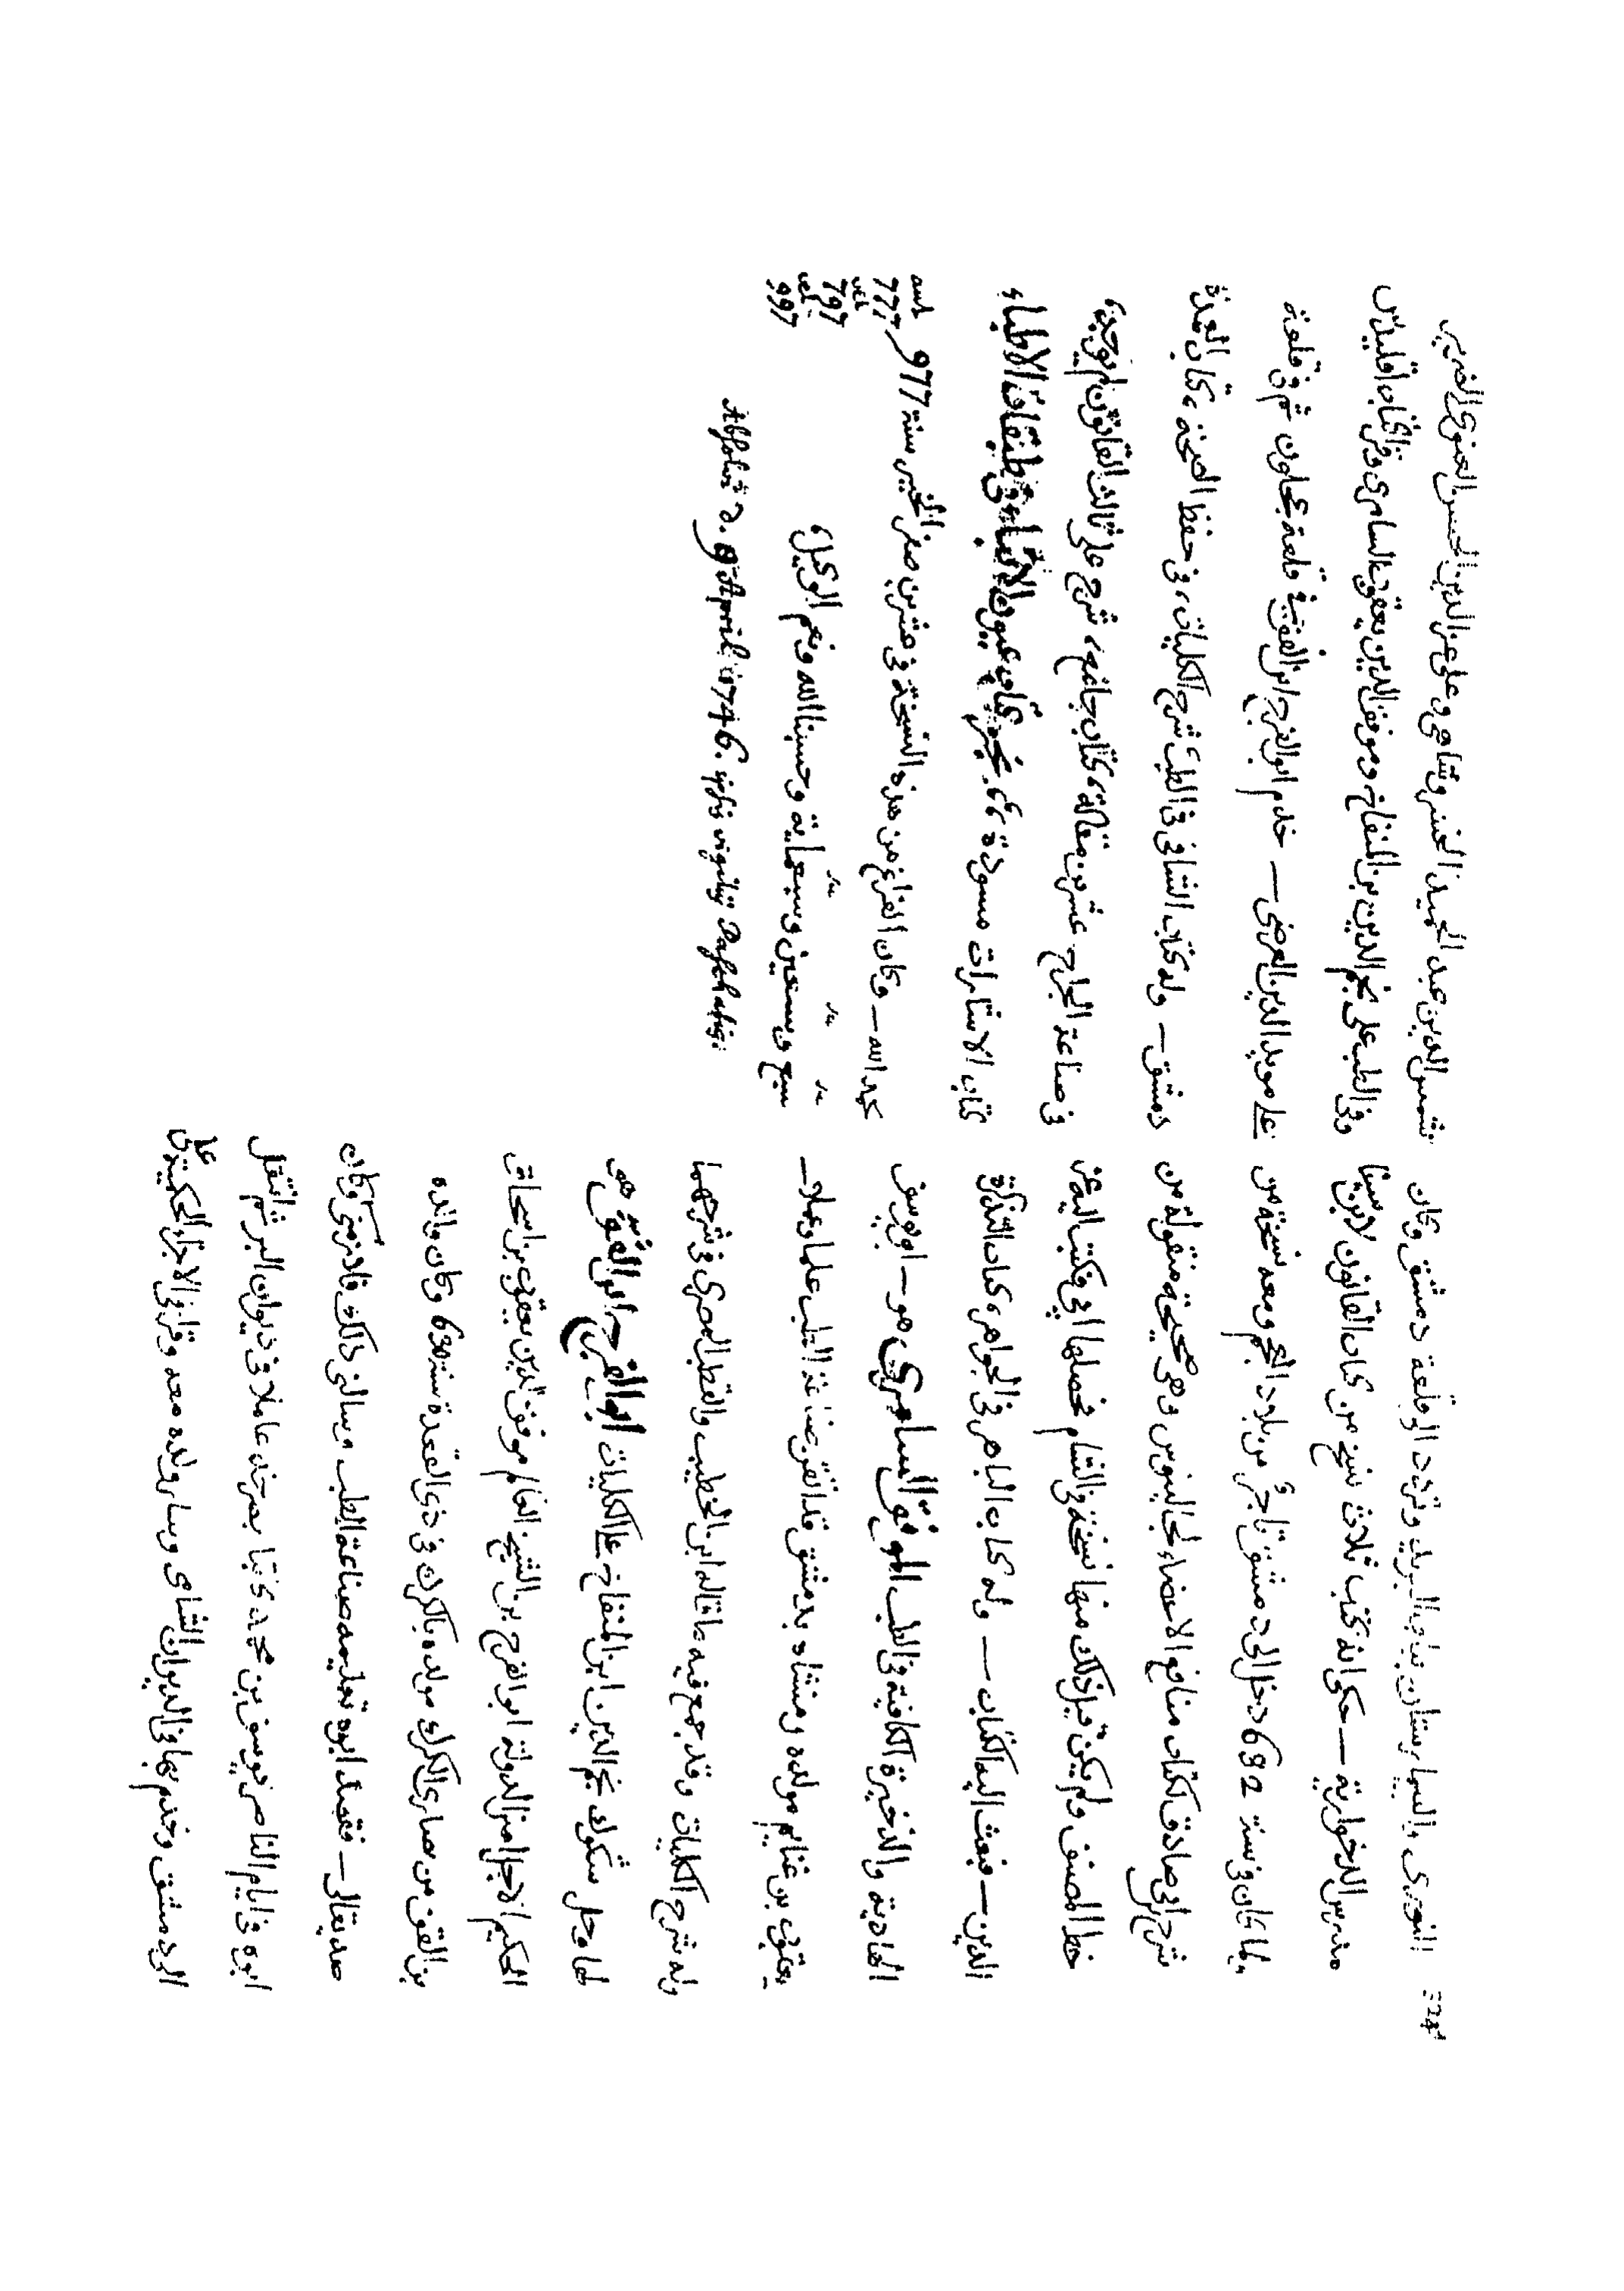 النورى والبيمارستان بباب البريد وتردد الى قلعة دمشق وكان
مدرس الدخوارية – حكى انه كتب ثلاث نسخ من كتاب القانون لابن سينا
ولما كان فى سنة 632 دخل الى دمشق تاجر من بلاد العجم ومعه نسخة من
شرح ابن ابى صادق لكتاب منافع الاعضاء لجالينوس وهى صحيحة منقولة من
خط المصنف ولم يكن قبل ذلك منها نسخة فى الشام فحصلها ابى فكتب اليه عز
الدين – فبعث اليه الكتاب – وله كتاب الباهر فى الجواهر، كتاب التذكرة
الهادية والذخيرة الكافية فى الطب الموفق السامرى هو – ابو يوسف
يعقوب بن غنايم مولده ومنشاه بدمشق قد اتقن صناعة الطب علما وعملا –
وله شرح الكليات وقد جمع فيه ما قاله ابن الخطيب والقطب المصرى فى شرحهما
لها وحل شكوك نجم الدين ابن المنفاخ على الكليات ابو الفرج ابن القف هو
الحكيم الاجل امين الدولة ابو الفرج بن الشيخ العالم موفق الدين يعقوب بن اسحاق
بن القف من نصارى الكرك مولده بالكرك فى ذى القعدة سنة 630 وكان والده
صديقا لى – فقصد ابوه تعليمه صناعة الطب وسالنى ذلك فلازمنى وكان
ابوه فى ايام الناصر يوسف بن محمد كاتبا بصرخد عاملا فى ديوان البر ثم انتقل
الى دمشق وخدم بها فى الديوان الشامى وسار ولده معه وقرا فى الاجزاء الحكمية على
شمس الدين عبد الحميد الخسروشاهى وعلى عز الدين الحسن الغنوى الضرير
وفى الطب على نجم الدين بن المنفاخ وموفق الدين يعقوب السامرى وقرا كتاب اقليدس
على مويد الدين العرضى – خدم ابو الفرج ابن القف فى قلعة عجلون ثم فى قلعة
دمشق – وله كتاب الشافى فى الطب، شرح الكليات، فى حفظ الصحة، كتاب العمدة
فى صناعة الجراح عشرين مقالة، كتاب جامع، شرح على ثالث القانون لم يوجد،
كتاب الاشارات مسودة، كتاب عيون الانباء فى طبقات الاطباء
بحمد الله – وكان الفراغ من هذه النسخة فى عشرين صفر الخير سنة 977
777
797
997
سبع وتسعين وسبعماية وحسبنا الله ونعم الوكيل
Absolvi d. 9 April 1746.